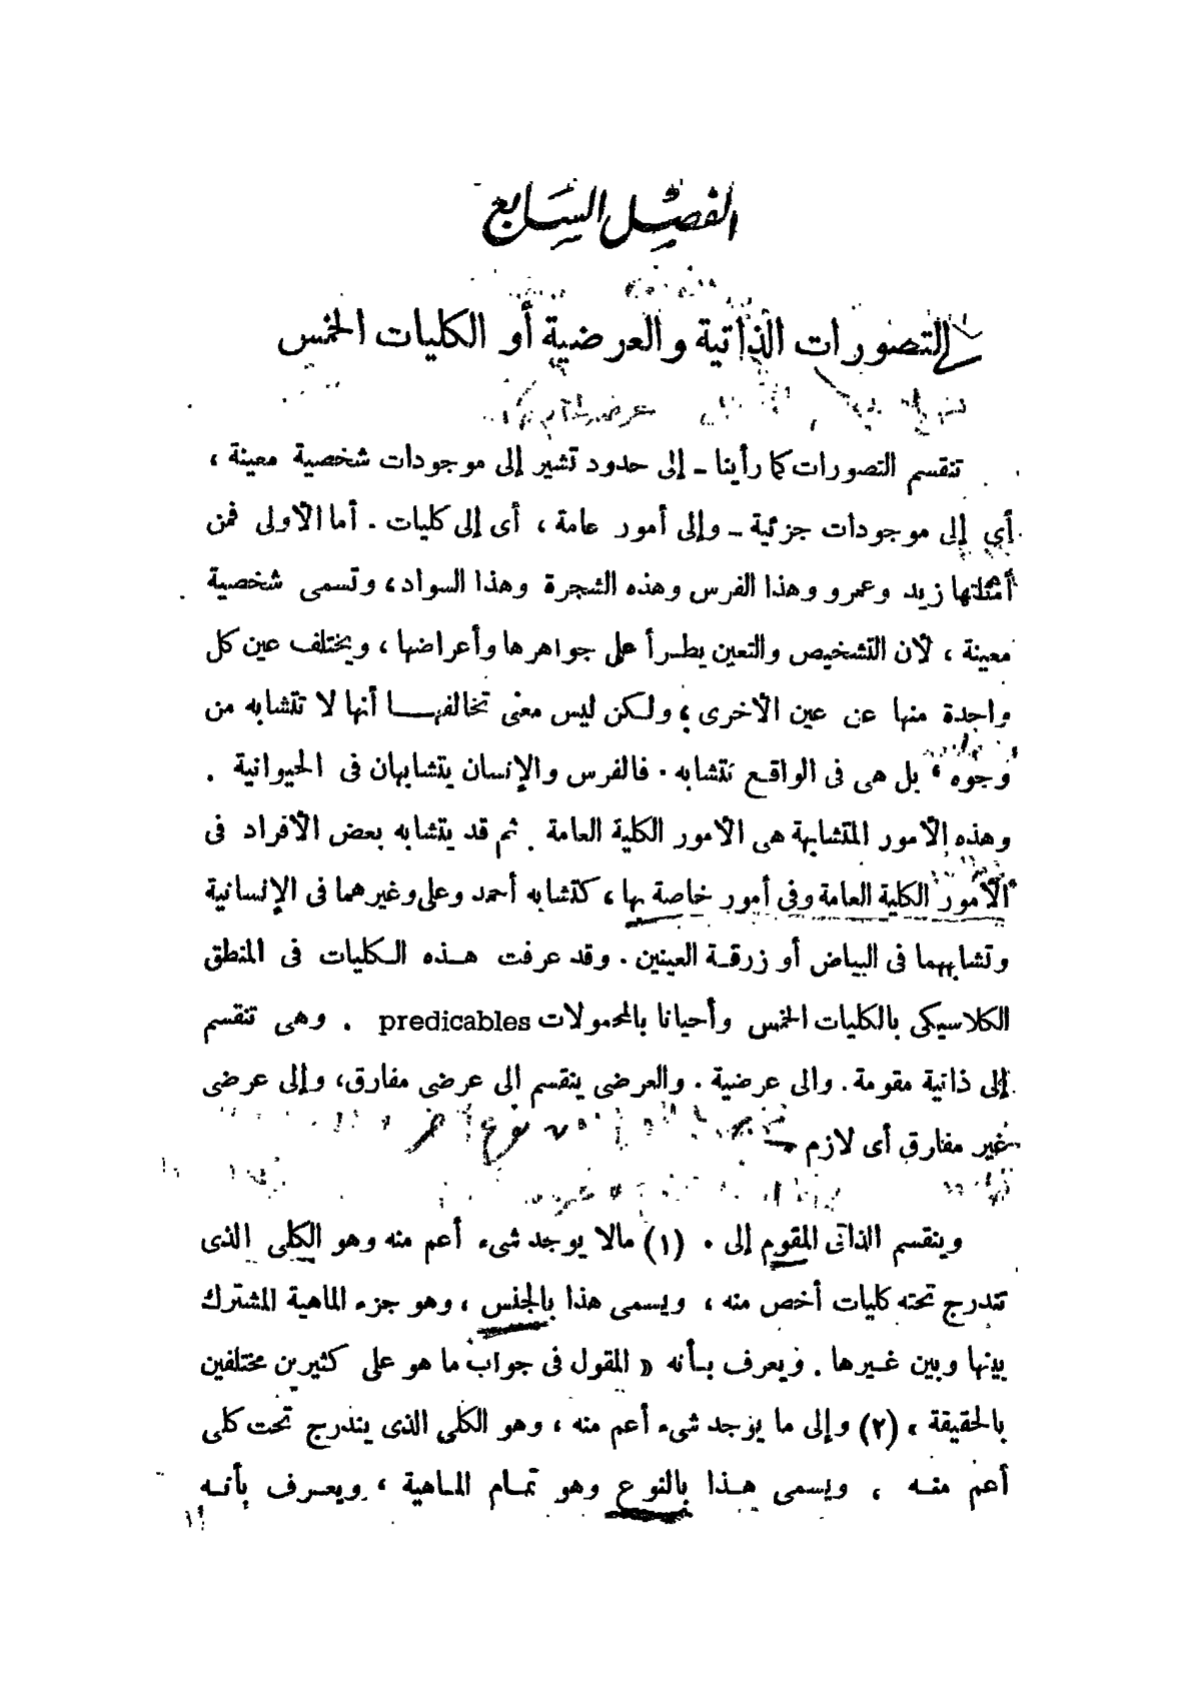 الفصل السابع
التصورات الذاتية والعرضية أو الكليات الخمس
تنقسم التصورات كما رأينا - إلى حدود تشير إلى موجودات شخصية معينة ،
أي إلى موجودات جزئية - وإلى أمور عامة ، أى إلى كليات . أما الأولى فمن
أمثلتها زيد وعمرو وهذا الفرس وهذه الشجرة وهذا السواد ، وتسمى شخصية
معينة ، لأن التشخيص والتعين يطرأ على جواهرها وأعراضها ، ويختلف عين كل
واحدة منها عن عين الأخرى ؛ ولكن ليس معنى تخالفها أنها لا تتشابه من
وجوه ، بل هى فى الواقع تتشابه . فالفرس والإنسان يتشابهان فى الحيوانية .
وهذه الأمور المتشابهة هى الأمور الكلية العامة . ثم قد يتشابه بعض الأفراد فى
الأمور الكلية العامة وفى أمور خاصة بها ، كتشابه أحمد وعلى وغيرهما فى الإنسانية
وتشابههما فى البياض أو زرقة العينين . وقد عرفت هذه الكليات فى المنطق
الكلاسيكى بالكليات الخمس وأحيانا بالمحمولات predicables . وهى تنقسم
إلى ذاتية مقومة . والى عرضية . والعرضى ينقسم الى عرضى مفارق ، وإلى عرضى
غير مفارق أى لازم
نوع آخر
وينقسم الذاتى المقوم إلى . (١) مالا يوجد شىء أعم منه وهو الكلى الذى
تندرج تحته كليات أخص منه ، ويسمى هذا بالجنس ، وهو جزء الماهية المشترك
بينها وبين غيرها . ويعرف بأنه « المقول فى جواب ما هو على كثيرين مختلفين
بالحقيقة ، (٢) وإلى ما يوجد شىء أعم منه ، وهو الكلى الذى يندرج تحت كلى
أعم منه ، ويسمى هذا بالنوع وهو تمام الماهية ، ويعرف بأنه